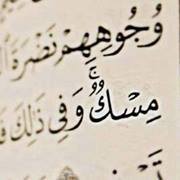 وُجُوهِهِمْ نَضْرَةَ
مِسْكٌ ۚ وَفِى ذَٰلِكَ